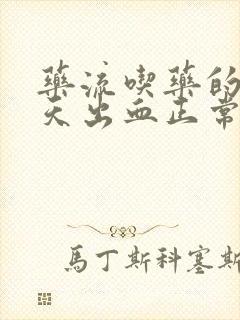 藥流喫藥的
天出血正常
馬丁斯科塞斯